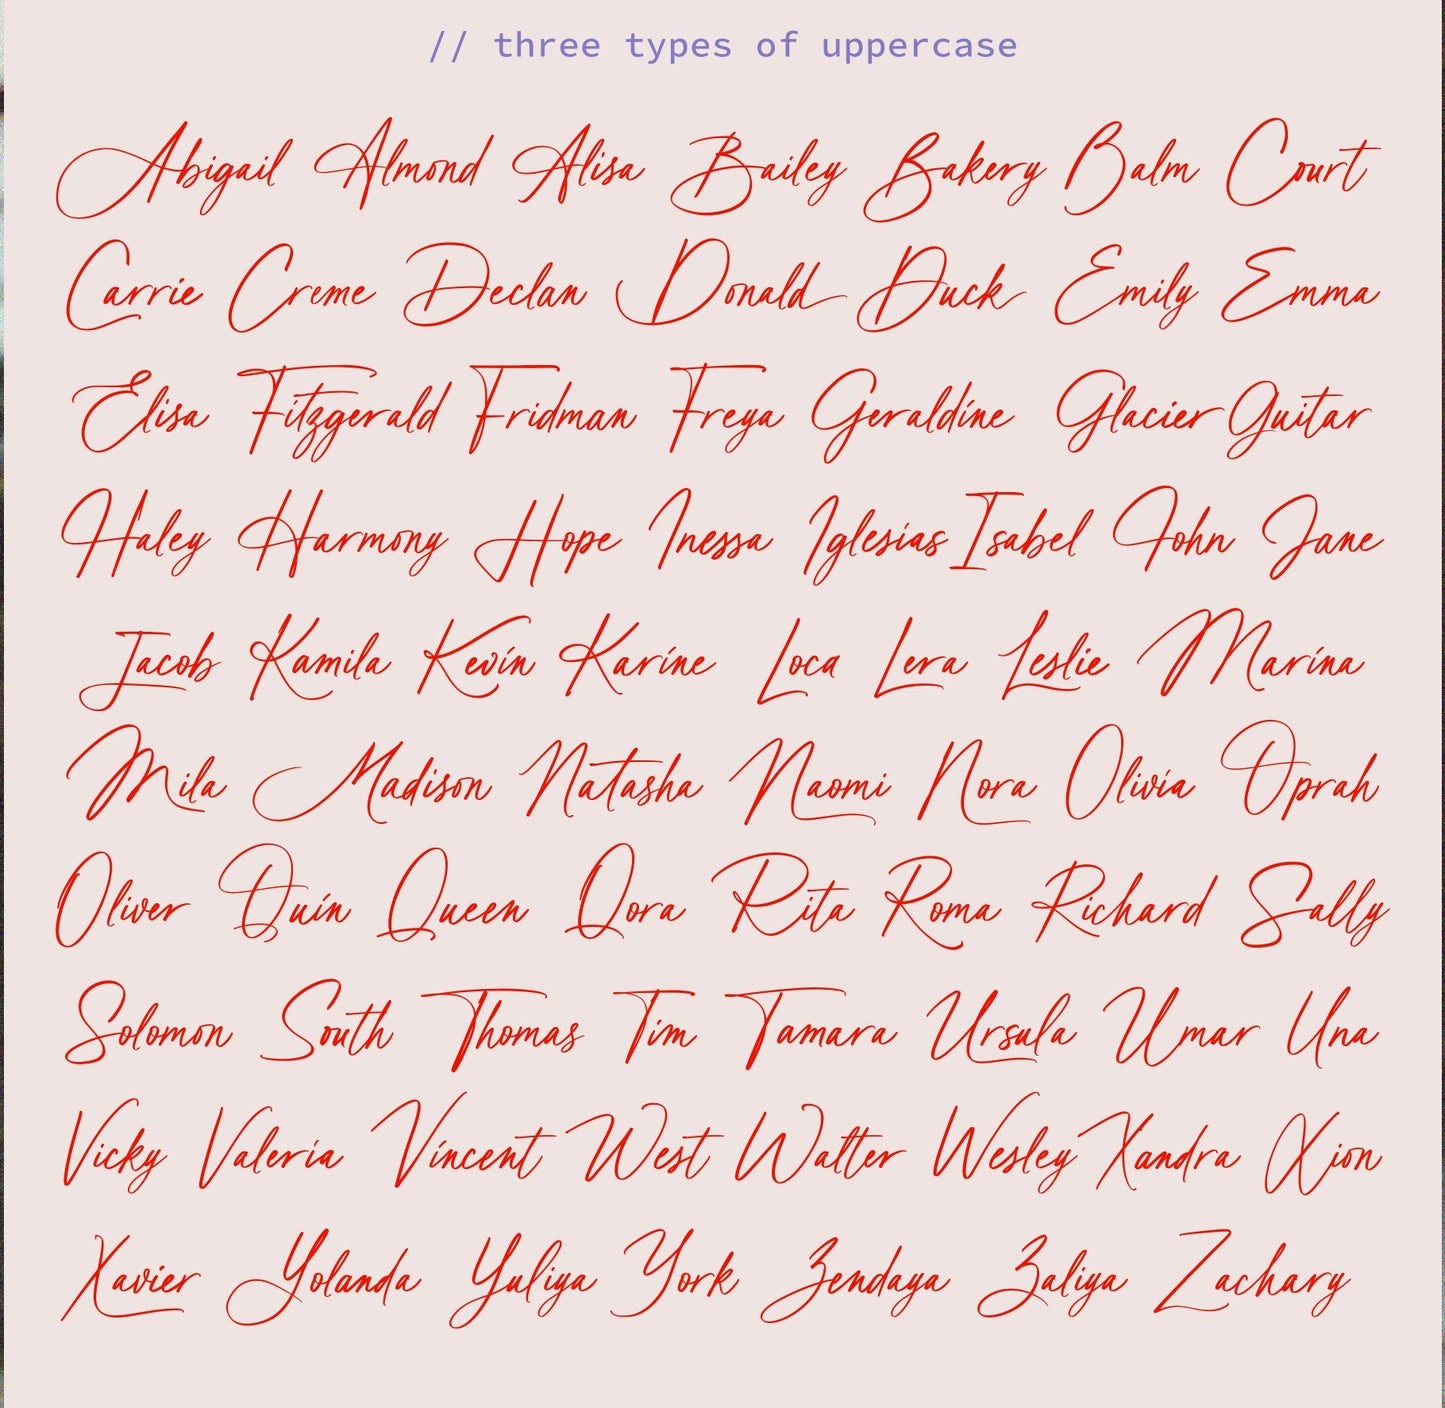 // three types of uppercase
Abigail Almond Alisa Bailey Bakery Balm Court
Carrie Creme Declan Donald Duck Emily Emma
Elisa Fitzgerald Fridman Freya Geraldine Glacier Guitar
Haley Harmony Hope Inessa Iglesias Isabel John Jane
Jacob Kamila Kevin Karine Loca Lera Leslie Marina
Mila Madison Natasha Naomi Nora Olivia Oprah
Oliver Quin Queen Qora Rita Roma Richard Sally
Solomon South Thomas Tim Tamara Ursula Umar Una
Vicky Valeria Vincent West Walter Wesley Xandra Xion
Xavier Yolanda Yuliya York Zendaya Zaliya Zachary